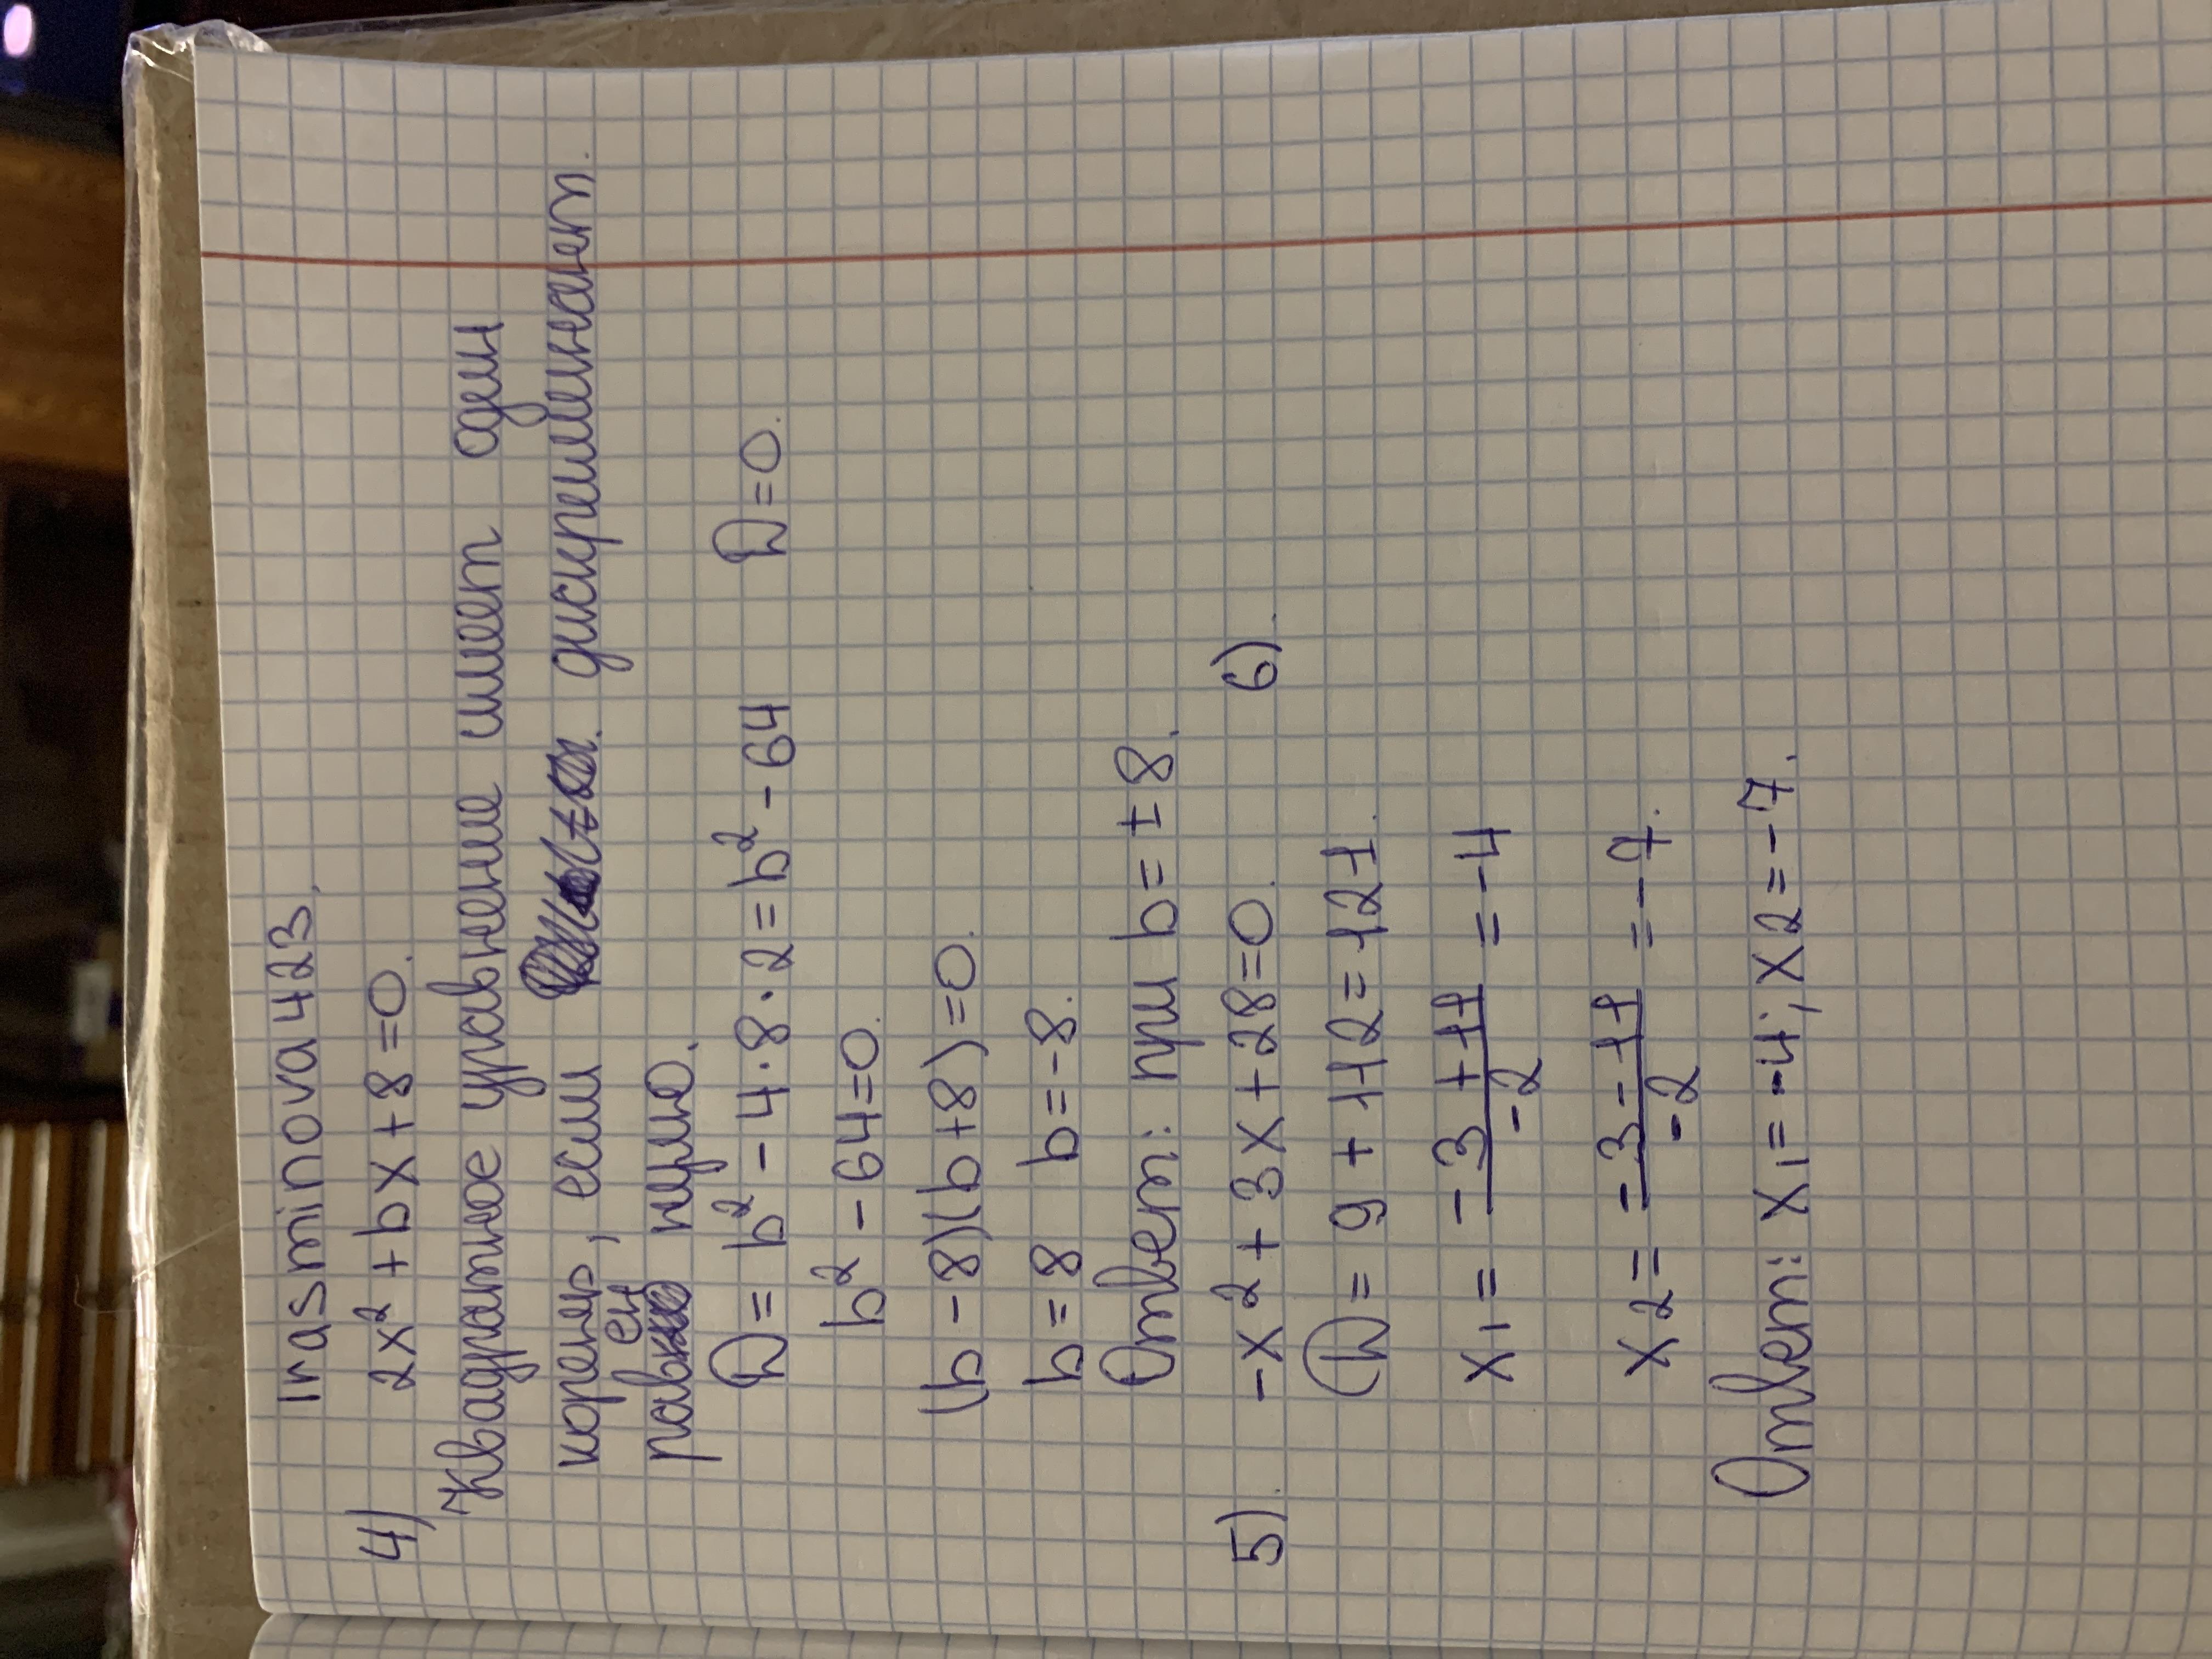 irasminova423.
4) 2x² + bx + 8 = 0.
Квадратное уравнение имеет один
корень, если дискриминант.
равен нулю.
D = b² - 4 · 8 · 2 = b² - 64 D = 0.
b² - 64 = 0.
(b - 8)(b + 8) = 0.
b = 8 b = -8.
Ответ: при b = ± 8.
5). -x² + 3x + 28 = 0. 6).
D = 9 + 112 = 121.
x₁ = -3 + 11 / -2 = -4
x₂ = -3 - 11 / -2 = -7.
Ответ: x₁ = -4; x₂ = -7.